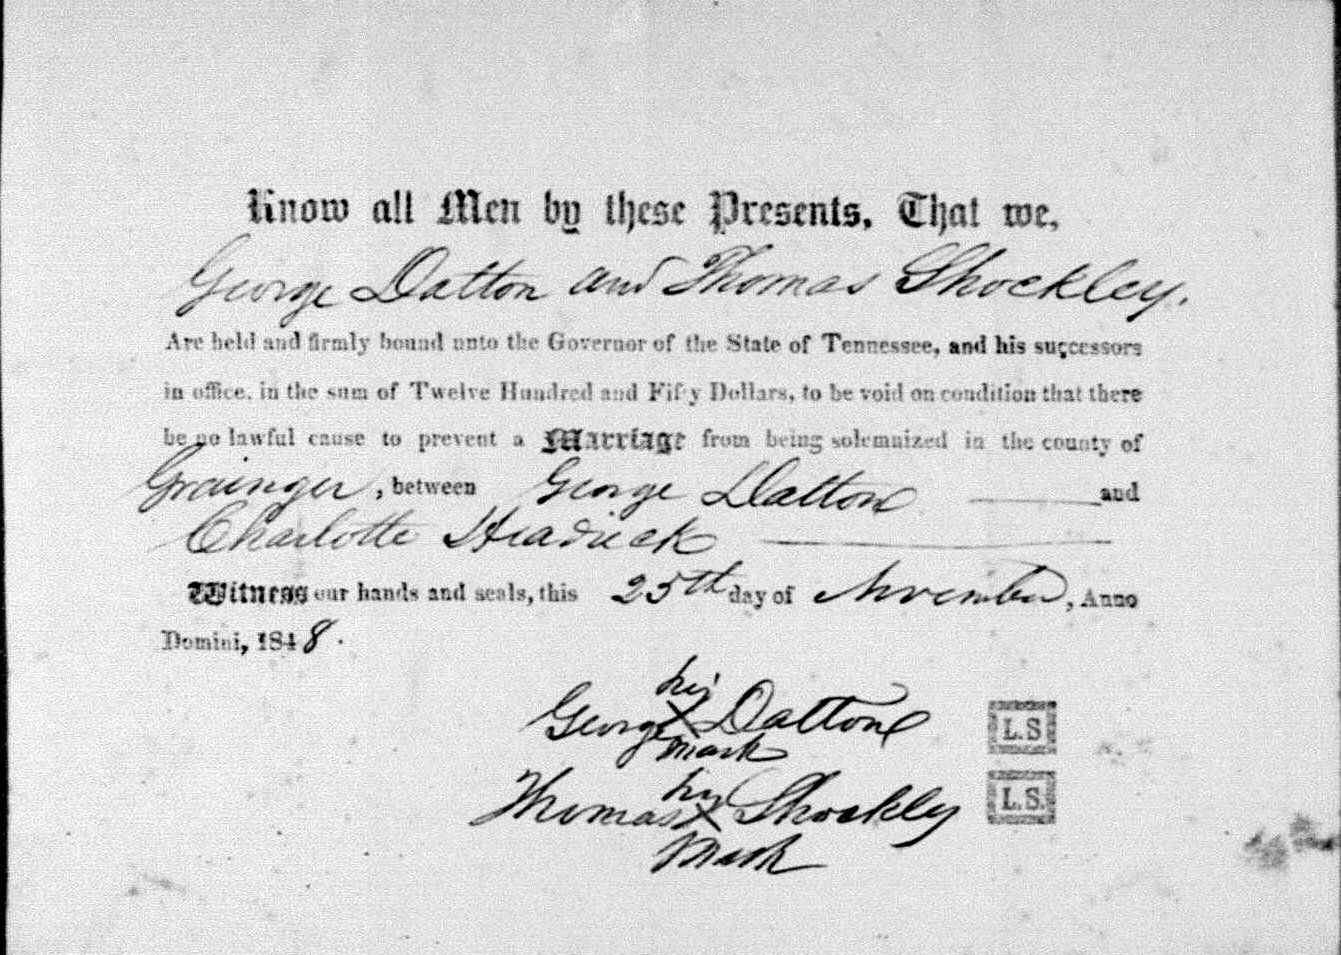 Know all Men by these Presents, That we,
George Dalton and Thomas Shockley.
Are held and firmly bound unto the Governor of the State of Tennessee, and his successors
in office, in the sum of Twelve Hundred and Fifty Dollars, to be void on condition that there
be no lawful cause to prevent a Marriage from being solemnized in the county of
Grainger, between George Dalton and
Charlotte Headrick
Witness our hands and seals, this 25th day of November, Anno
Domini, 1848.
his
George X Dalton L.S
mark
his
Thomas X Shockley L.S.
Mark